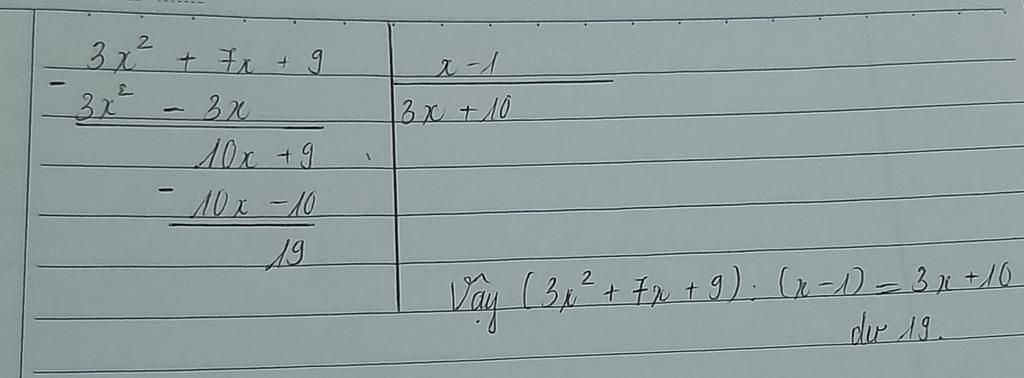 3x² + 7x + 9 | x - 1
- 3x² - 3x | 3x + 10
10x + 9
- 10x - 10
19
Vậy (3x² + 7x + 9) : (x - 1) = 3x + 10
dư 19.